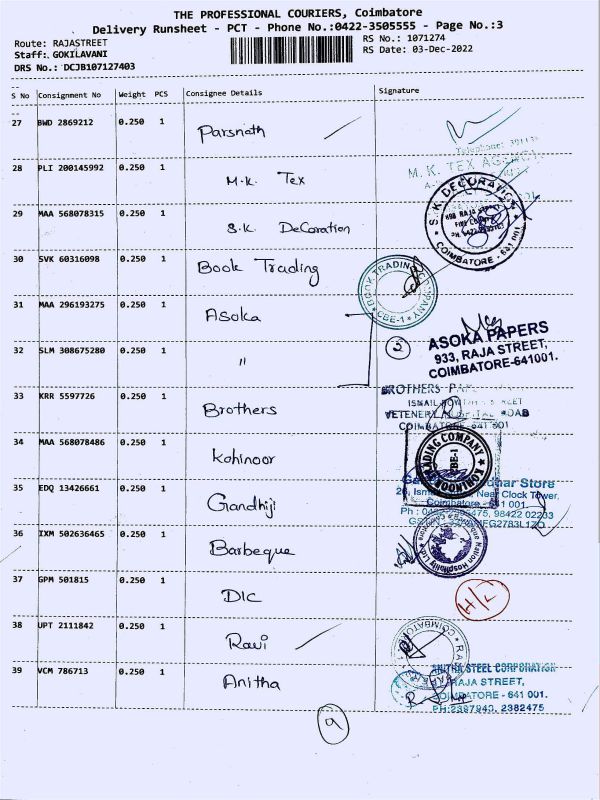 THE PROFESSIONAL COURIERS, Coimbatore
Delivery Runsheet - PCT - Phone No.:0422-3505555 - Page No.:3
Route: RAJASTREET
RS No.: 1071274
Staff: GOKILAVANI
RS Date: 03-Dec-2022
DRS No.: DCJB107127403
S No Consignment No Weight PCS Consignee Details Signature
27 BWD 2869212 0.250 1 Parsnath
28 PLI 200145992 0.250 1 M.K. Tex
M. K. TEX
29 MAA 568078315 0.250 1 S.K. Decoration
S.K. DECORATION
COIMBATORE - 641 001
30 SVK 60316098 0.250 1 Book Trading
BOOK TRADING COMPANY
CBE-1
31 MAA 296193275 0.250 1 Asoka
ASOKA PAPERS
933, RAJA STREET,
COIMBATORE-641001.
32 SLM 308675280 0.250 1 "
2
33 KRR 5597726 0.250 1 Brothers
BROTHERS
34 MAA 568078486 0.250 1 Kohinoor
KOHINOOR TRADING COMPANY
CBE-1
35 EDQ 13426661 0.250 1 Gandhiji
Store
Near Clock Tower,
Coimbatore - 641 001.
98422 02203
36 IXM 502636465 0.250 1 Barbeque
Nation Hospitality Ltd
37 GPM 501815 0.250 1 DIC
H/L
38 UPT 2111842 0.250 1 Ravi
39 VCM 786713 0.250 1 Anitha
ANITHA STEEL CORPORATION
RAJA STREET,
COIMBATORE - 641 001.
PH:2387943, 2382475
9